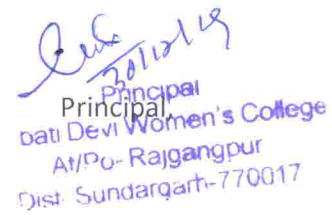 30/12/19
Principal
Principal,
pati Devi Women's College
At/Po- Rajgangpur
Dist- Sundargarh-770017